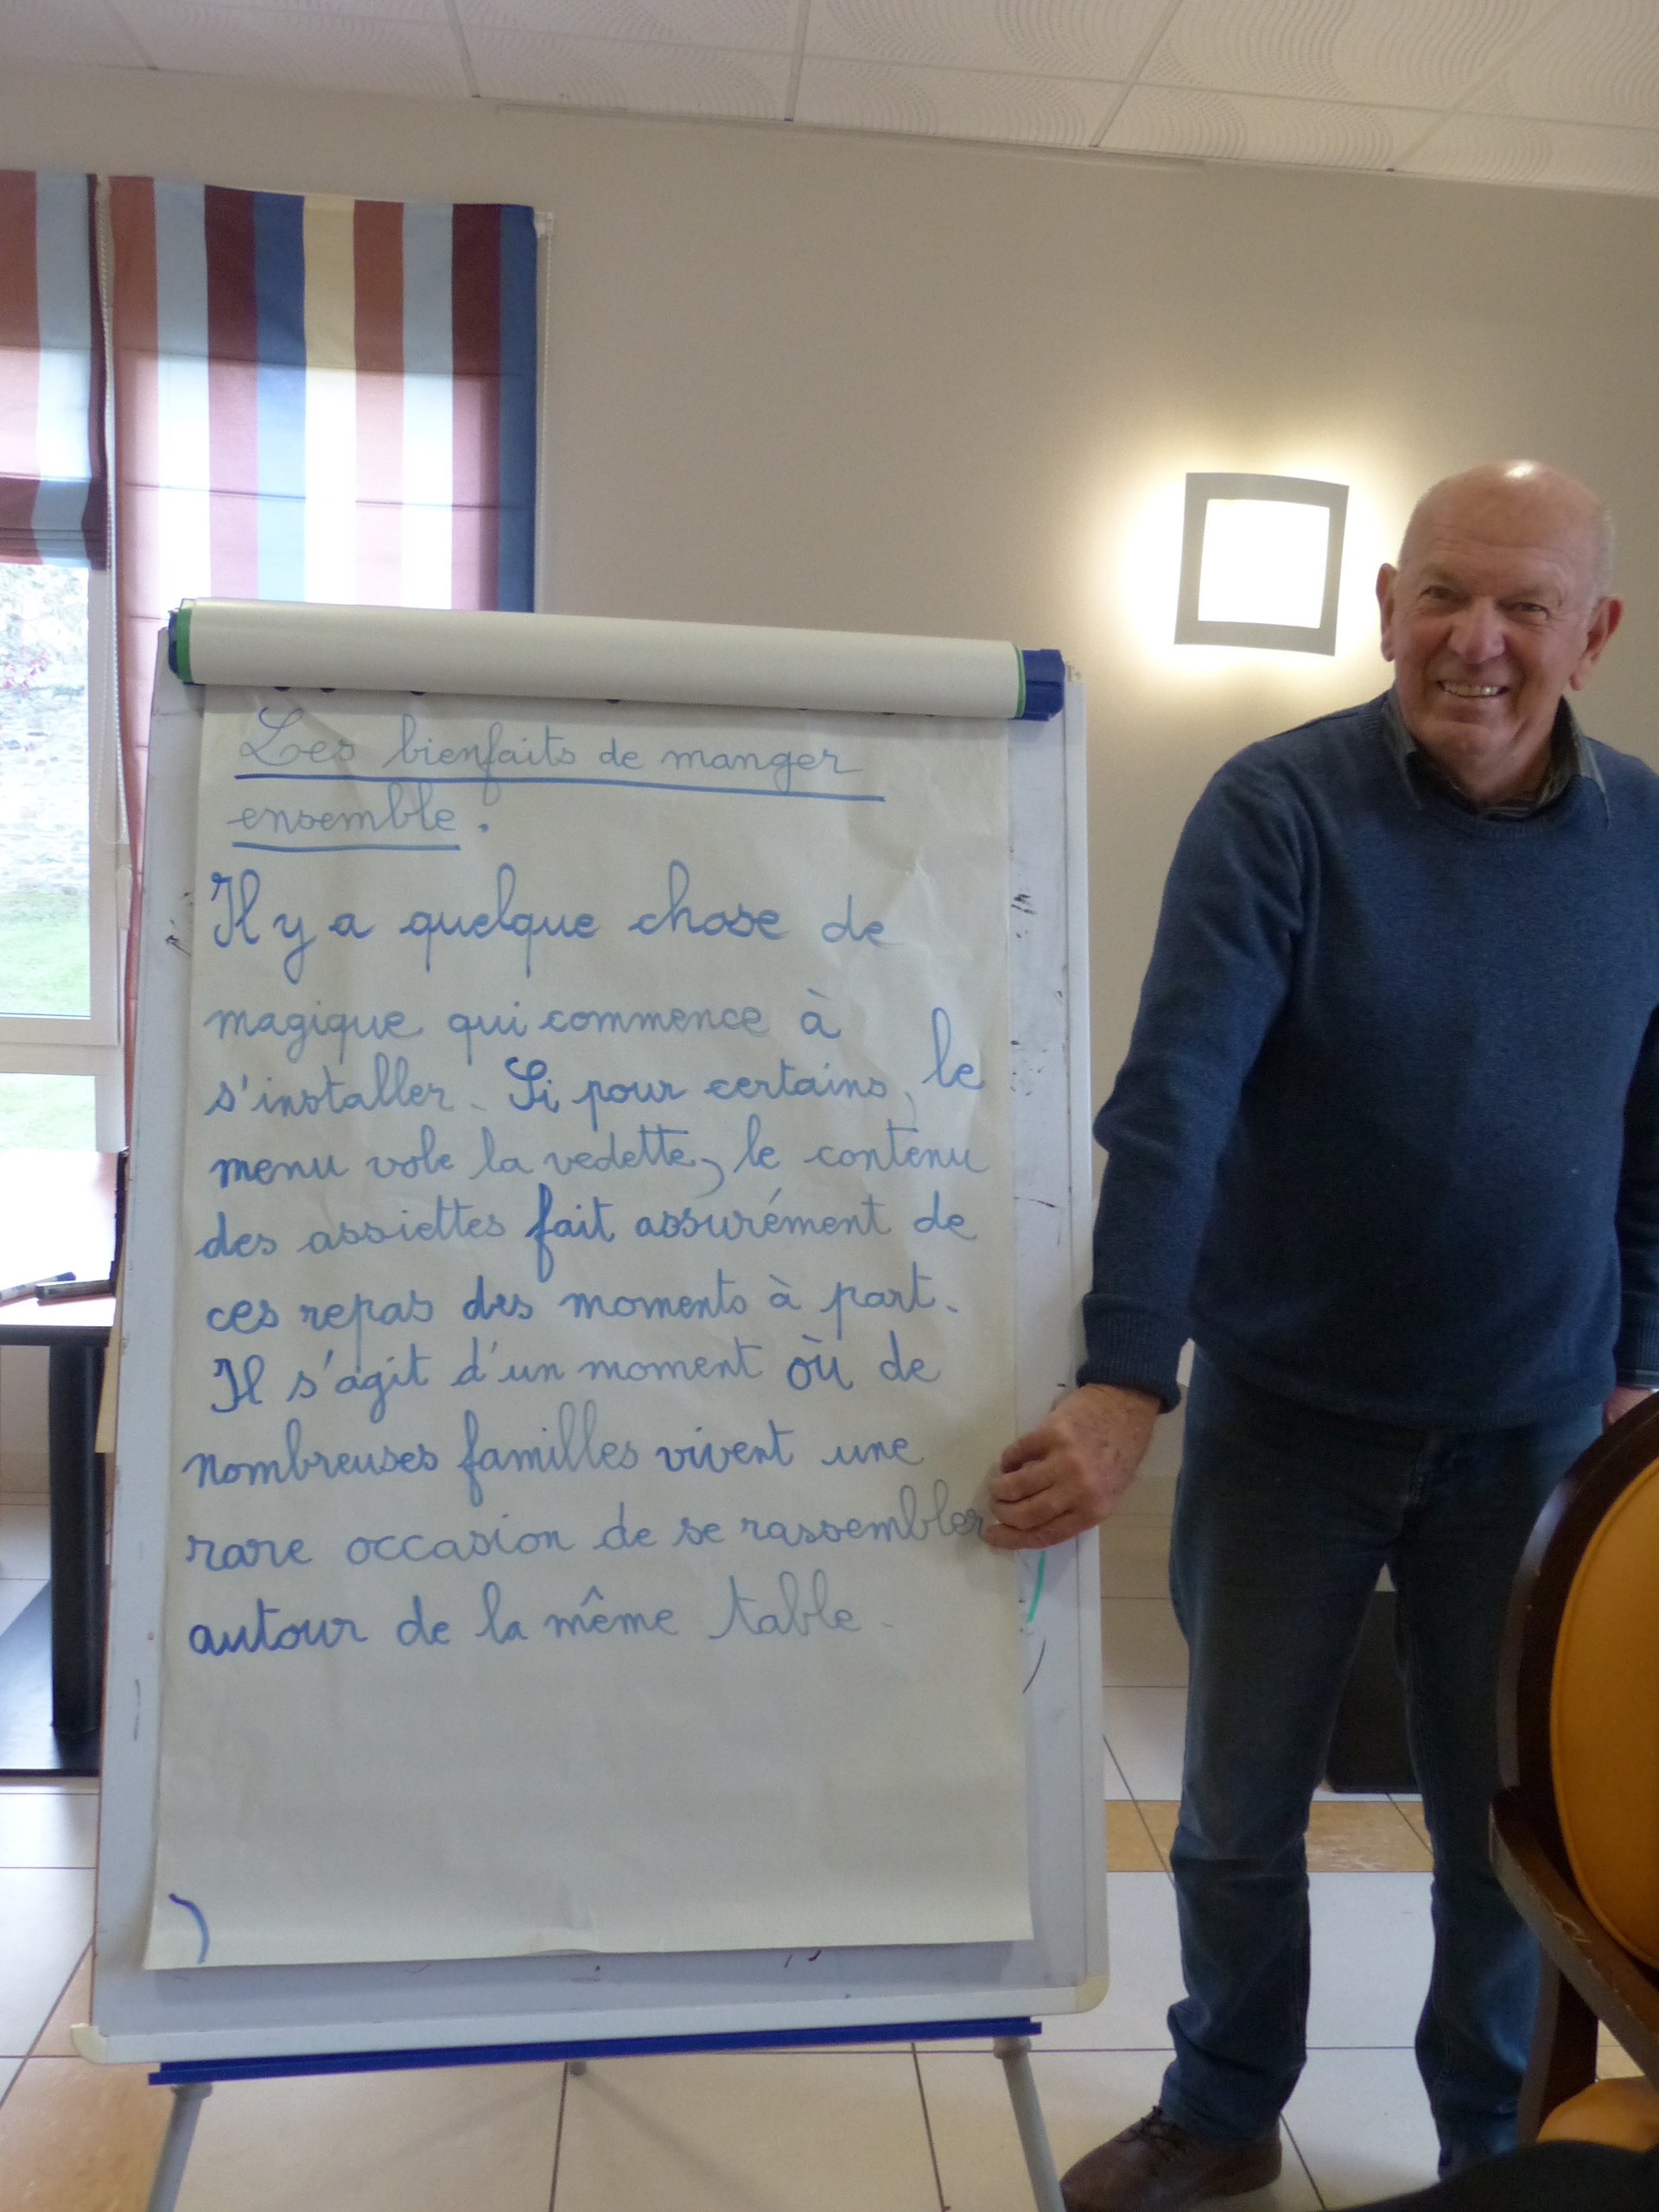 Les bienfaits de manger
ensemble.
Il y a quelque chose de
magique qui commence à
s'installer. Si pour certains, le
menu vole la vedette, le contenu
des assiettes fait assurément de
ces repas des moments à part.
Il s'agit d'un moment où de
nombreuses familles vivent une
rare occasion de se rassembler
autour de la même table.